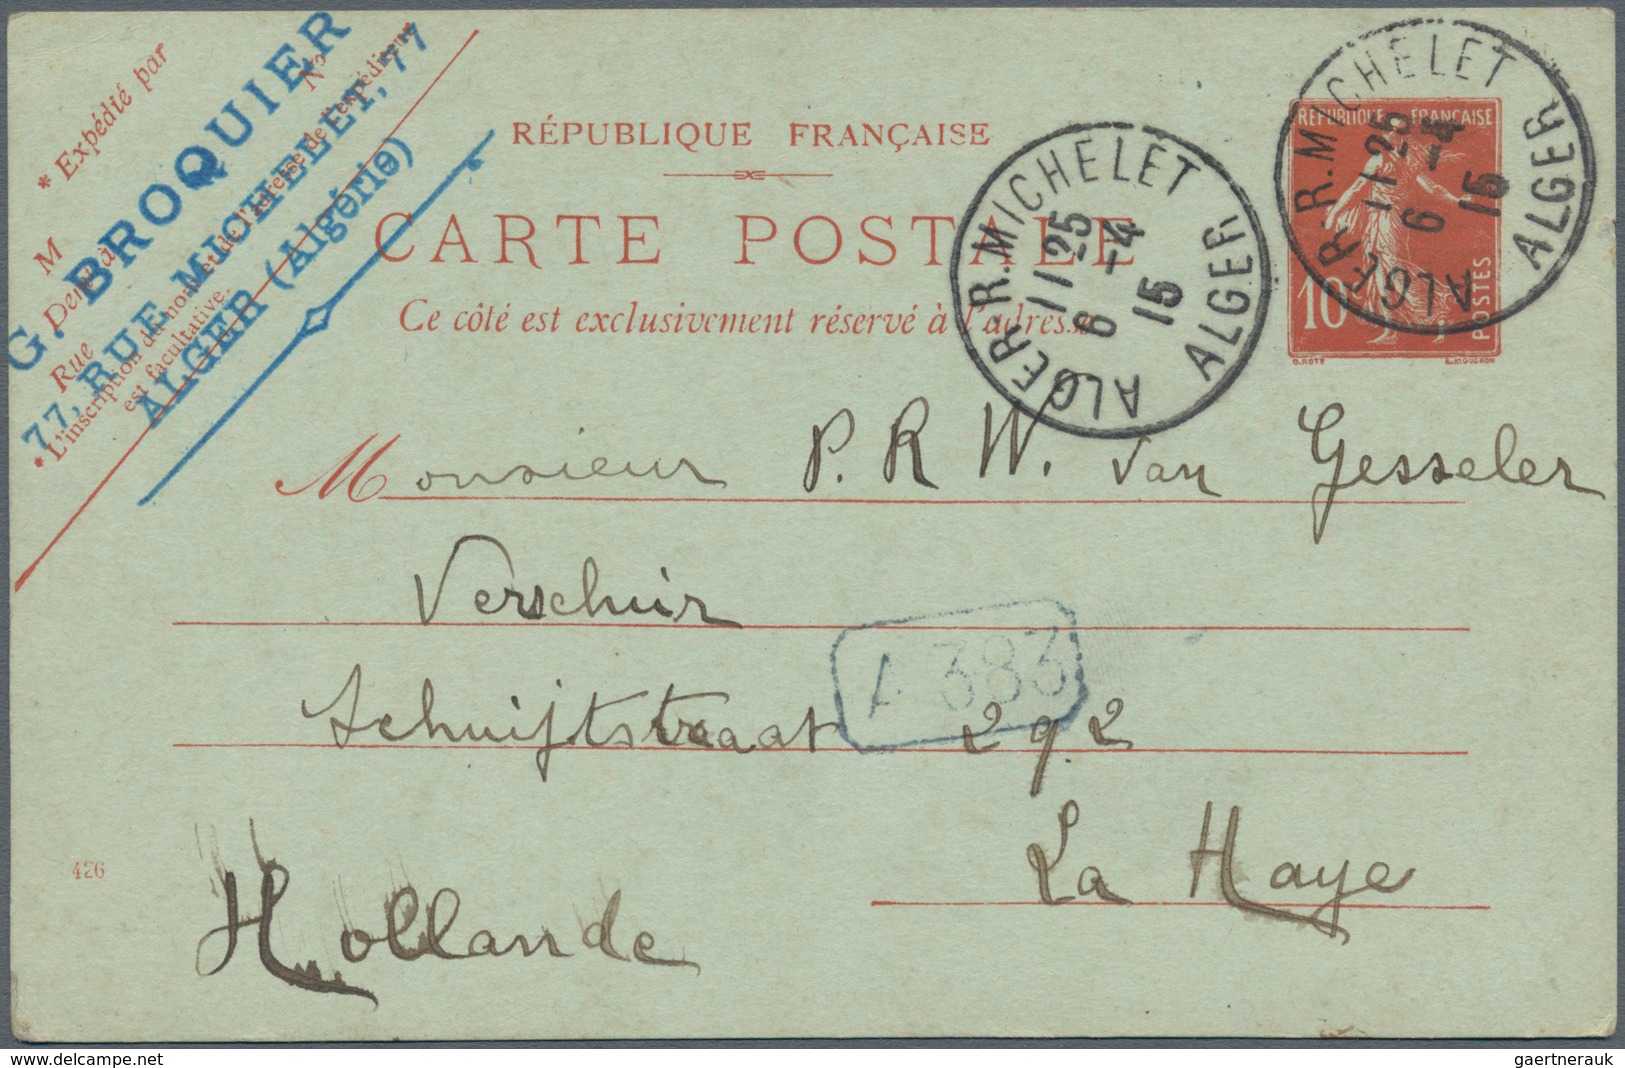 * Expédié par
M
Demeurant
Rue
N°
* L'inscription du nom et de l'adresse de l'expéditeur
est facultative.
G. BROQUIER
77, RUE MICHELET, 77
ALGER (Algérie)
RÉPUBLIQUE FRANÇAISE
CARTE POSTALE
Ce côté est exclusivement réservé à l'adresse
ALGER R. MICHELET
11 25
6 -4
15
ALGER
ALGER R. MICHELET
11 25
6 -4
15
ALGER
RÉPUBLIQUE FRANÇAISE
10
POSTES
O. ROTY E. MOUCHON
Monsieur P. R W. van Gesseler
Verschuir
Schuijtstraat 292
A 383
La Haye
Hollande
426
www.delcampe.net
gaertnerauk